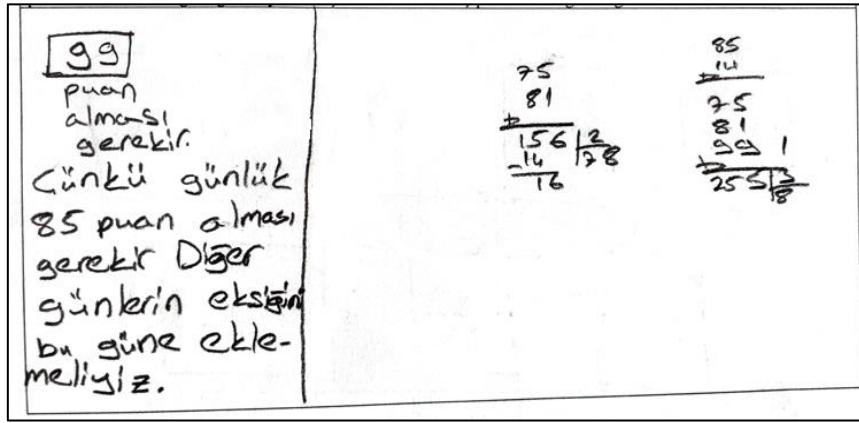 99
puan
alması
gerekir.
Çünkü günlük
85 puan alması
gerekir Diğer
günlerin eksiğini
bu güne ekle-
meliyiz.
75
81
+
156 | 2
-14 | 78
16
85
14
+
75
81
99 1
+
255 | 3
8